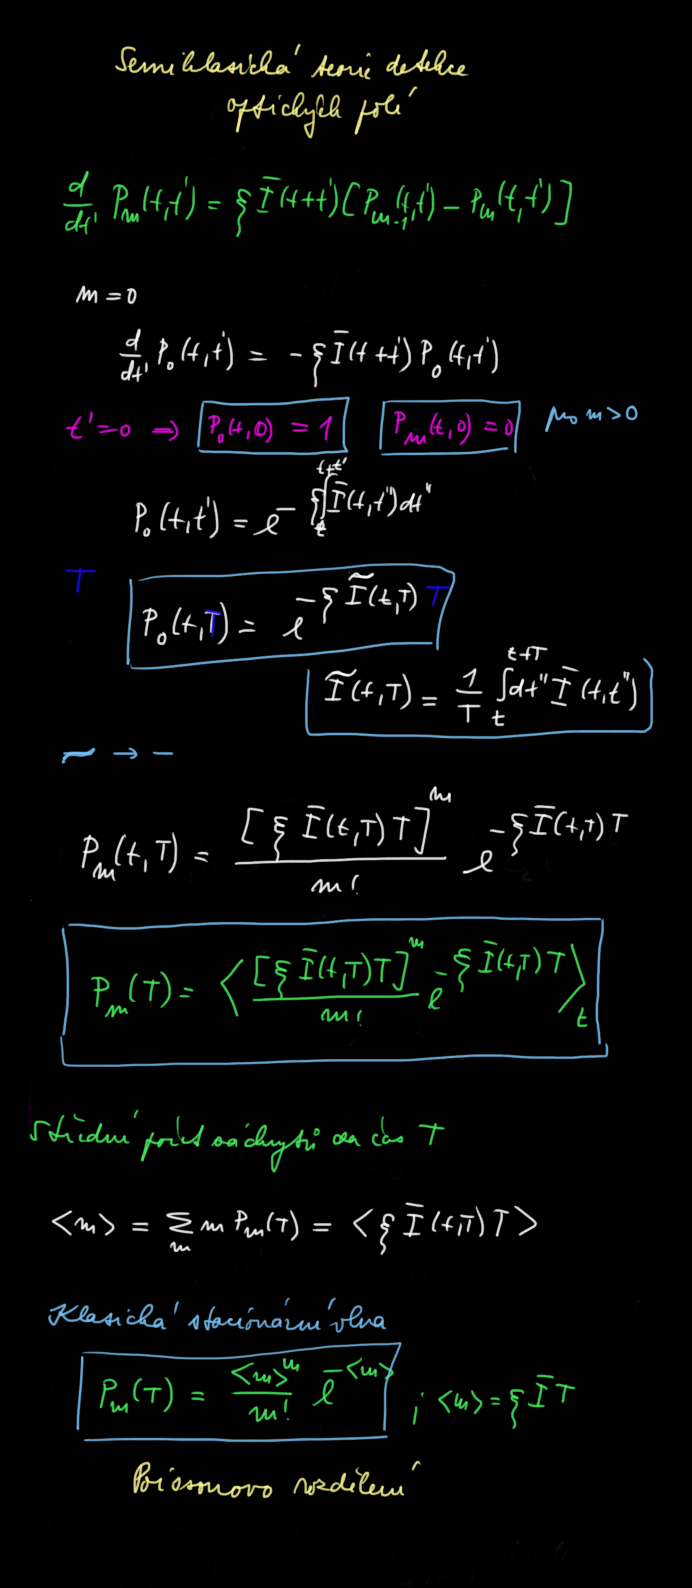 Semiklasická teorie detekce
optických polí
d/dt' P_m(t,t') = ξ Ī(t+t') [P_{m-1}(t,t') − P_m(t,t')]
m = 0
d/dt' P_0(t,t') = −ξ Ī(t+t') P_0(t,t')
t'=0 → P_0(t,0) = 1 P_m(t,0) = 0 pro m>0
P_0(t,t') = e^{−ξ∫_t^{t+t'} Ī(t,t'')dt''}
T
P_0(t,T) = e^{−ξ Ĩ(t,T) T}
Ĩ(t,T) = 1/T ∫_t^{t+T} dt'' Ī(t,t'')
~ → −
P_m(t,T) = [ξ Ī(t,T) T]^m / m! e^{−ξ Ī(t,T) T}
P_m(T) = ⟨ [ξ Ī(t,T) T]^m / m! e^{−ξ Ī(t,T) T} ⟩_t
Střední počet záchytů za čas T
<m> = Σ_m m P_m(T) = <ξ Ī(t,T) T>
Klasická stacionární vlna
P_m(T) = <m>^m / m! e^{−<m>} ; <m> = ξ Ī T
Poissonovo rozdělení